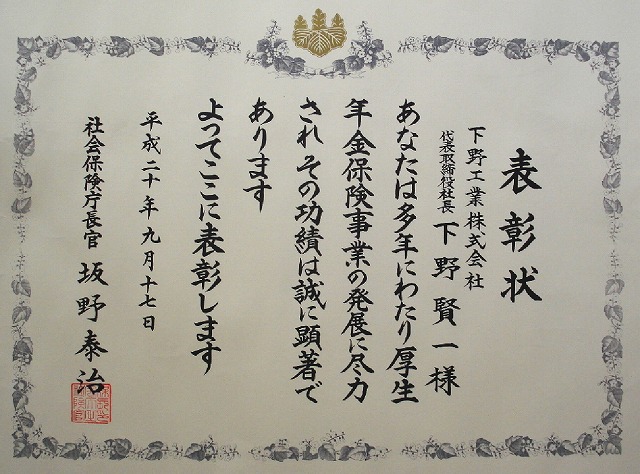 表彰状
下野工業株式会社
代表取締役社長 下野賢一様
あなたは多年にわたり厚生
年金保険事業の発展に尽力
され その功績は誠に顕著で
あります
よってここに表彰します
平成二十年九月十七日
社会保険庁長官 坂野泰治